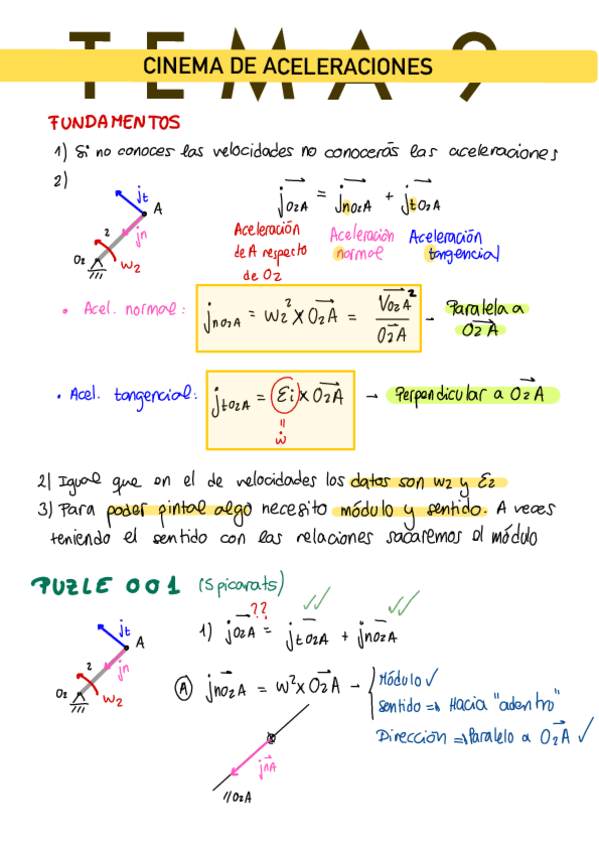 TEMA 9
CINEMA DE ACELERACIONES
FUNDAMENTOS
1) Si no conoces las velocidades no conocerás las aceleraciones
2)
jt
A
jn
2
O2
w2
jO2A = jnO2A + jtO2A
Aceleración de A respecto de O2
Aceleración normal
Aceleración tangencial
• Acel. normal: jnO2A = w2² x O2A = VO2A² / O2A → Paralela a O2A
• Acel. tangencial: jtO2A = Ei x O2A → Perpendicular a O2A
=
ẇ
2) Igual que en el de velocidades los datos son w2 y E2
3) Para poder pintal algo necesito módulo y sentido. A veces
teniendo el sentido con las relaciones sacaremos el módulo
PUZLE 001 (Spicarats)
jt
A
jn
2
O2
w2
??
1) jO2A = jtO2A + jnO2A
A jnO2A = w² x O2A -
Módulo ✓
Sentido => Hacia "adentro"
Dirección => Paralelo a O2A ✓
jnA
//O2A